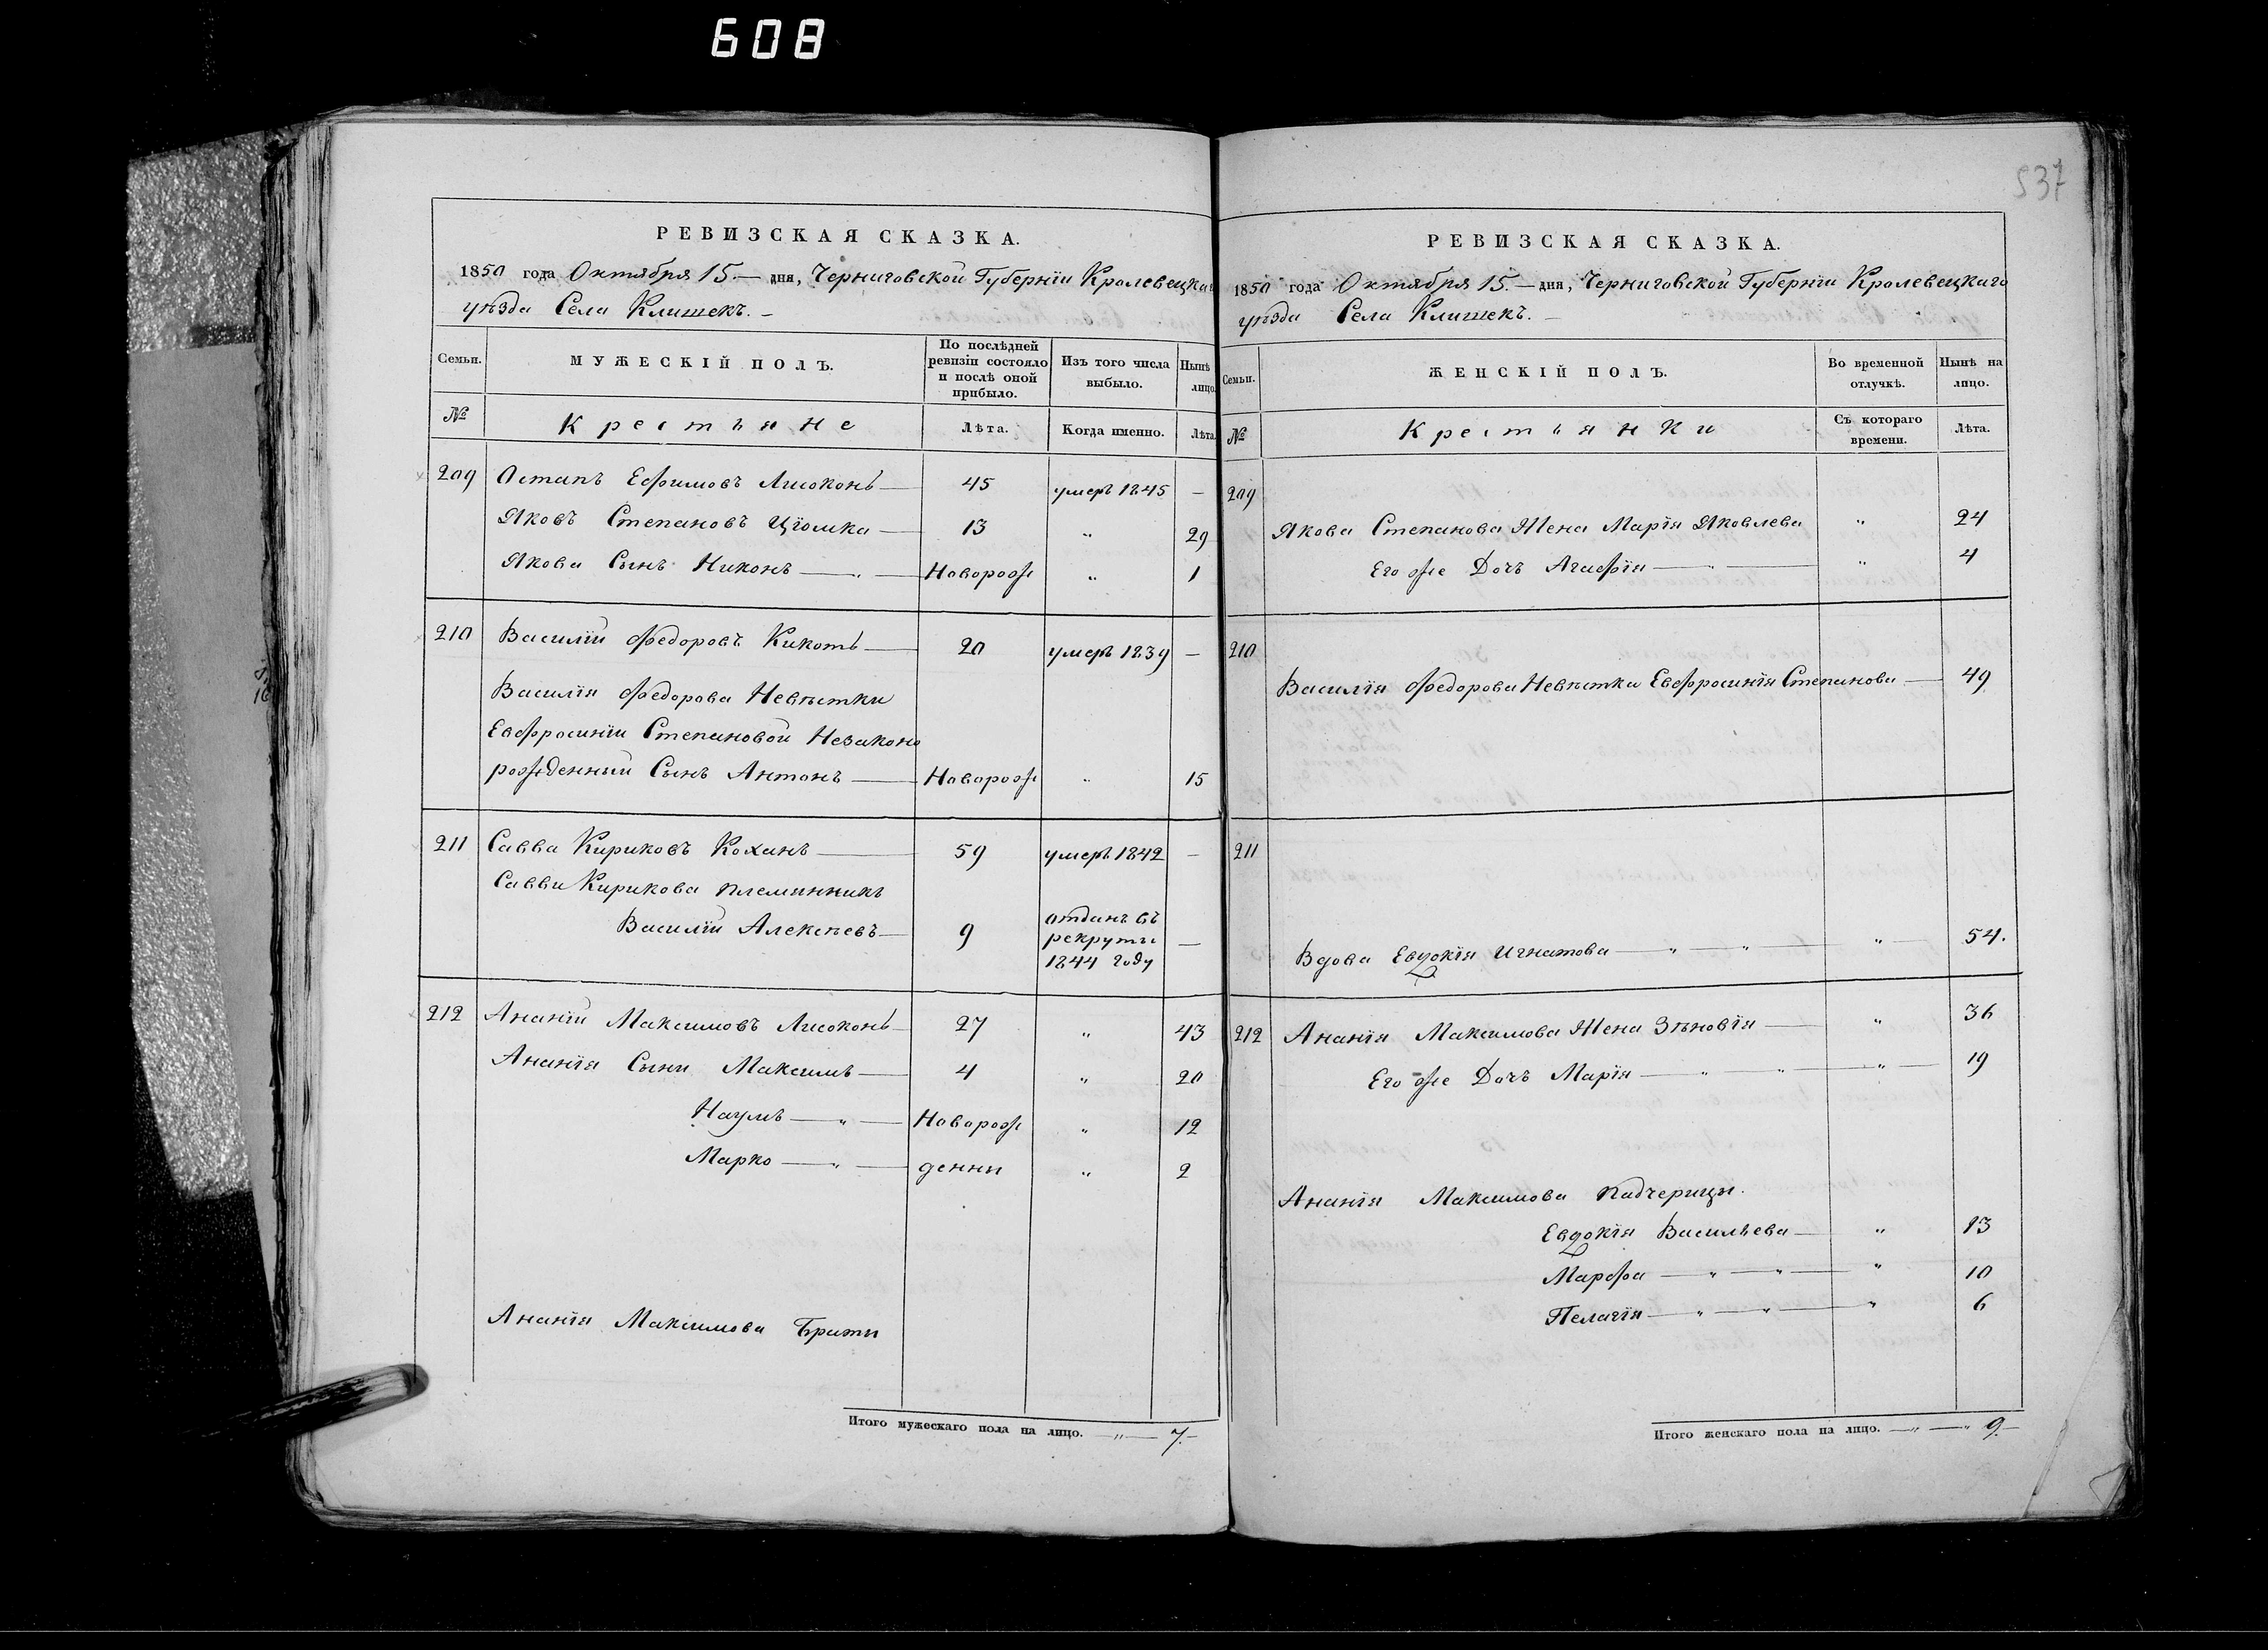 608
537
РЕВИЗСКАЯ СКАЗКА.
1850 года Октября 15.— дня, Черниговской Губерніи Кролевецкаго
уѣзда Села Клишекъ.—
Семьи. МУЖЕСКІЙ ПОЛЪ. По послѣдней ревизіи состояло и послѣ оной прибыло. Изъ того числа выбыло. Нынѣ на лицо.
№ Крестьяне Лѣта. Когда именно. Лѣта.
209 Остапъ Ефимовъ Лисоконь — 45 умеръ 1845 —
Яковъ Степановъ Цюмка — 13 " 29
Якова Сынъ Никонъ — " — Новорож " 1
210 Василій Федоровъ Кикоть — 20 умеръ 1839 —
Василія Федорова Невѣстки
Евфросиніи Степановой Незаконо
рожденный Сынъ Антонъ — Новорож " 15
211 Савва Кириковъ Коханъ — 59 умеръ 1842 —
Саввы Кирикова племянникъ
Василій Алексѣевъ — 9 отданъ въ рекруты 1844 году —
212 Ананій Максимовъ Лисоконь — 27 " 43
Ананія Сыны Максимъ — 4 " 20
Наумъ — " — Новорож " 12
Марко — " — денны " 2
Ананія Максимова Браты
Итого мужескаго пола на лицо. — " — 7.—
РЕВИЗСКАЯ СКАЗКА.
1850 года Октября 15.— дня, Черниговской Губерніи Кролевецкаго
уѣзда Села Клишекъ.—
Семьи. ЖЕНСКІЙ ПОЛЪ. Во временной отлучкѣ. Нынѣ на лицо.
№ Крестьянки Съ котораго времени. Лѣта.
209
Якова Степанова Жена Марія Яковлева " 24
Его же Дочь Агафія — " — " 4
210
Василія Федорова Невѣстка Евфросинія Степанова — 49
211
Вдова Евдокія Игнатова — " — " — " — 54.
212 Ананія Максимова Жена Зѣновія — " 36
Его же Дочь Марія — " — " — " — 19
Ананія Максимова Падчерицы.
Евдокія Васильева — " 13
Марфа — " — " — " 10
Пелагія — " — " — " 6
Итого женскаго пола на лицо. — " — " 9.—